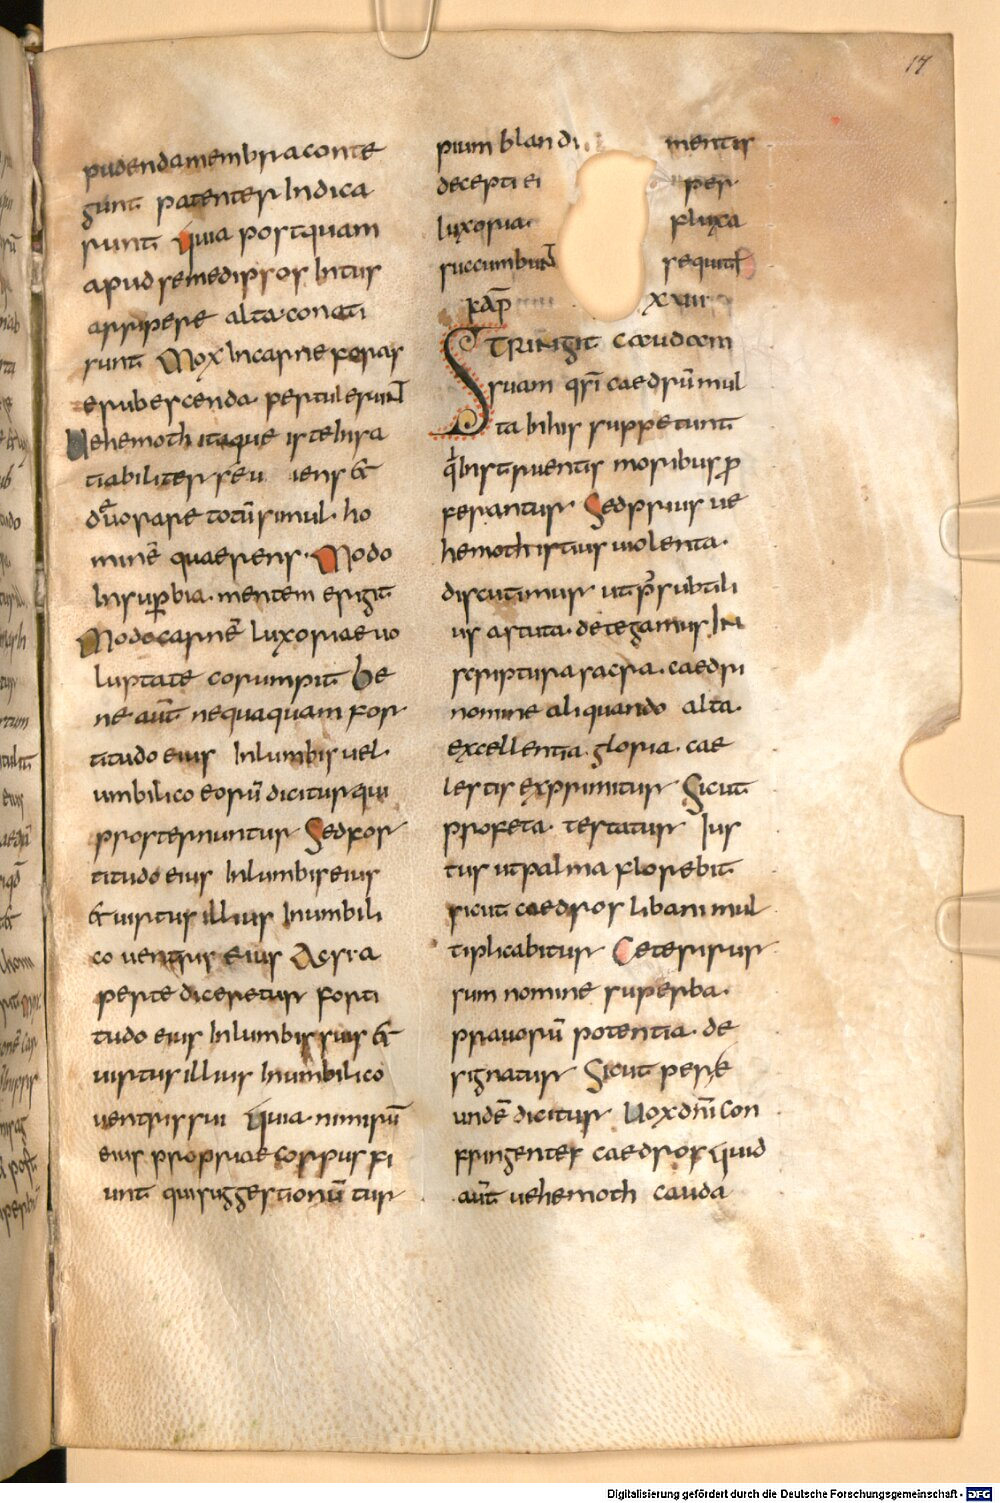 17
pudenda membra conte
gunt patenter Indica
runt Quia postquam
apud semedipsos Intus
arripere alta conati
sunt Mox Incarne foras
erubescenda pertulerunt
Uehemoth itaque iste Insa
tiabiliter seu iens &
deuorare totū simul ho
minē quaerens Modo
Insuꝑbia mentem erigit
Modo carnē luxoriae uo
luptate corumpit Be
ne aūt nequaquam for
titudo eius Inlumbis uel
umbilico eorū dicitur qui
prosternuntur Sed for
titudo eius Inlumbis eius
& uirtus illius Inumbili
co uentris eius Ac si a
perte diceretur forti
tudo eius Inlumbis suis &
uirtus illius Inumbilico
uentris sui Quia nimirū
eius propriae corpus fi
unt qui suggestionū tur
pium blandi mentis
decepti ei per
luxoria fluxa
succumbunt sequitĩ
kap̄ xxiii
STRINGit caudam
suam qsĩ caedrū mul
ta bihis suppetunt
q̇ Instruentis moribus ꝓ
ferantur Sed prius ue
hemoth istius uiolenta
discutimus ut p̄ subtili
us astuta detegamus IN
scriptura sacra caedri
nomine aliquando alta
excellentia gloria cae
lestis exprimitur Sicut
profeta testatur Ius
tus ut palma florebit
sicut caedros libani mul
tiplicabitur Ceterū rur
sum nomine superba
prauorū potentia de
signatur Sicut pere
undē dicitur Uox dn̄i con
fringentes caedros Quid
aūt uehemoth cauda
Digitalisierung gefördert durch die Deutsche Forschungsgemeinschaft - DFG